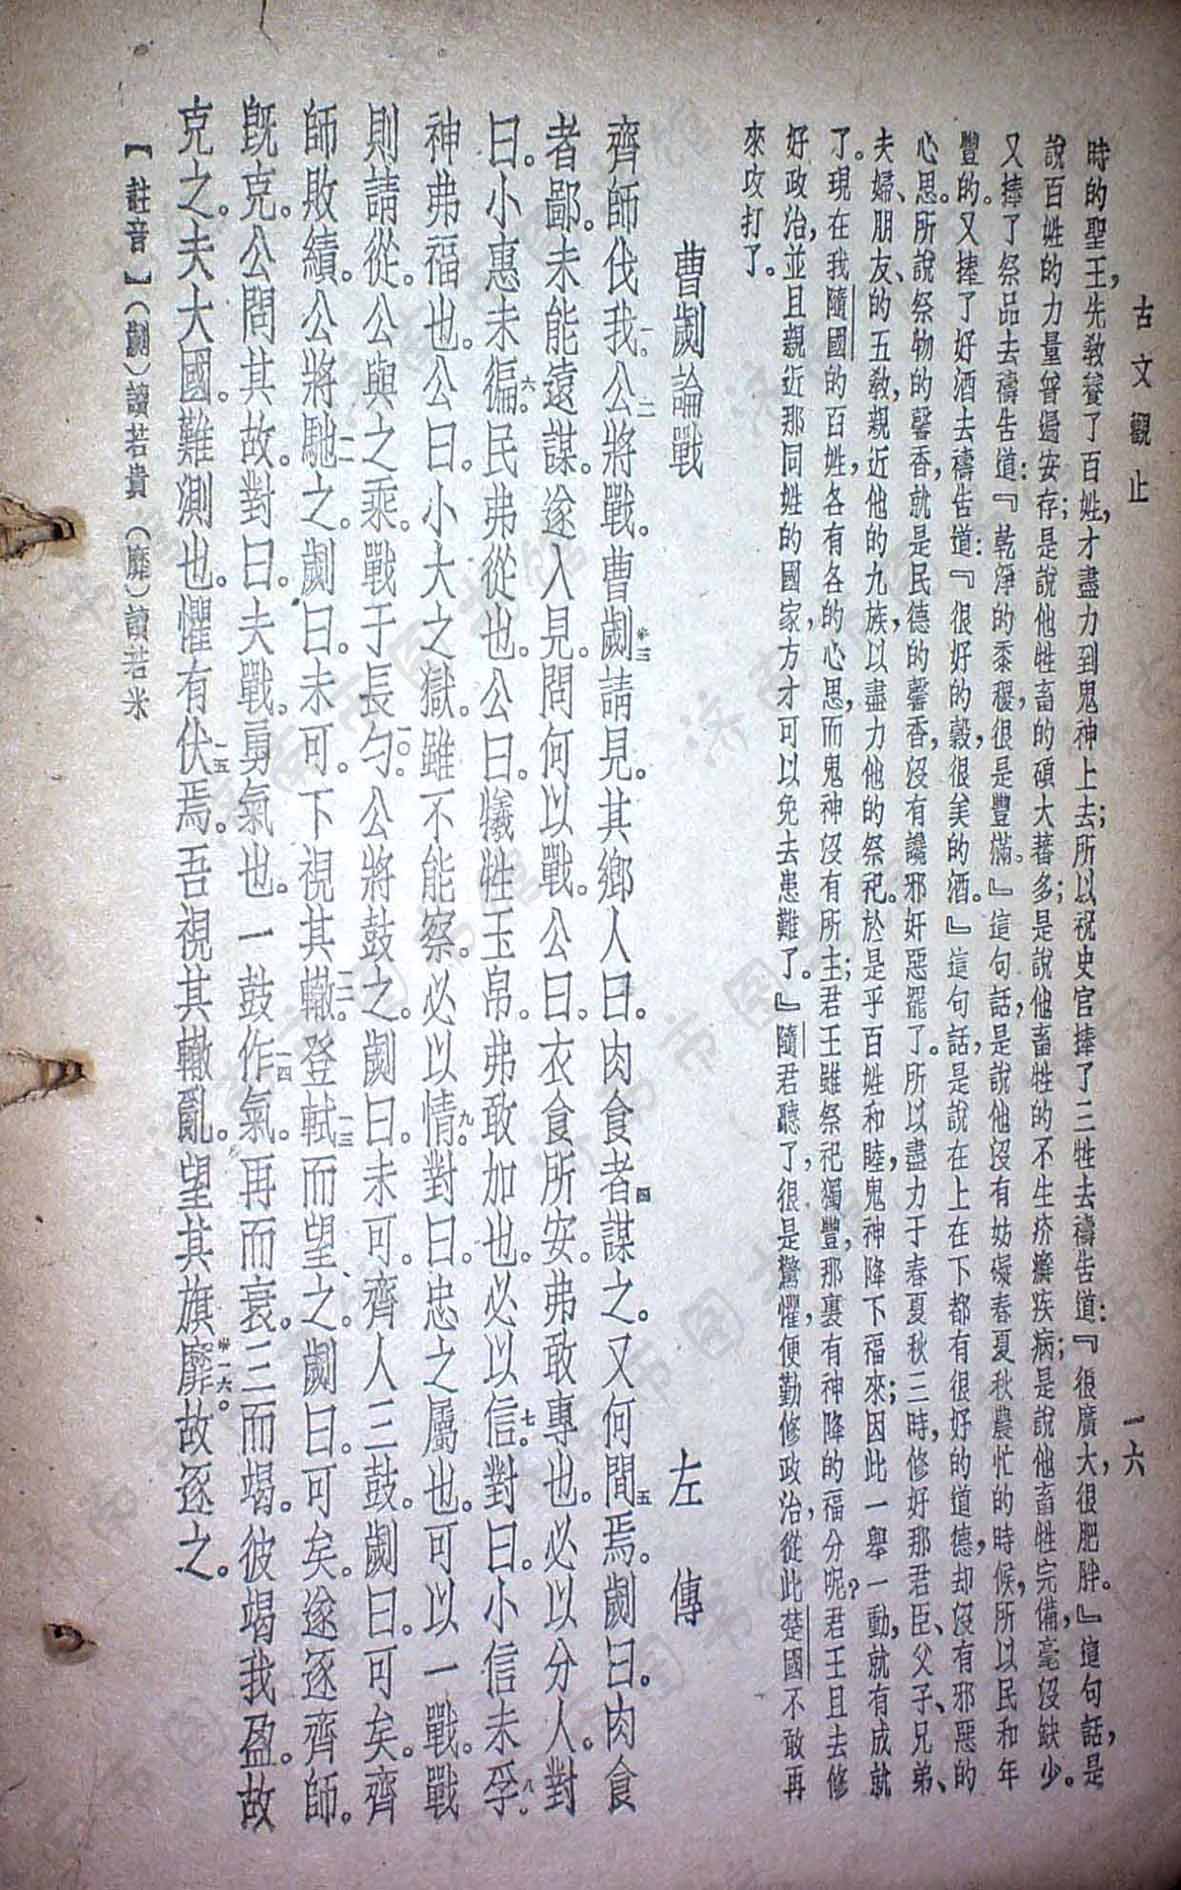 古文觀止
一六
時的聖王，先敎養了百姓，才盡力到鬼神上去；所以祝史官捧了三牲去禱告道：『很廣大，很肥胖。』這句話，是
說百姓的力量普遍安存；是說他牲畜的碩大蕃多；是說他畜牲的不生疥癬疾病；是說他畜牲完備，毫沒缺少。
又捧了祭品去禱告道：『乾淨的黍稷，很是豐滿。』這句話，是說他沒有妨礙春夏秋農忙的時候，所以民和年
豐的。又捧了好酒去禱告道：『很好的穀，很美的酒。』這句話，是說在上在下都有很好的道德，却沒有邪惡的
心思。所說祭物的馨香，就是民德的馨香，沒有讒邪奸惡罷了。所以盡力于春夏秋三時，修好那君臣、父子、兄弟、
夫婦、朋友、的五敎，親近他的九族，以盡力他的祭祀。於是乎百姓和睦，鬼神降下福來；因此一舉一動，就有成就
了。現在我隨國的百姓，各有各的心思，而鬼神沒有所主；君王雖祭祀獨豐，那裏有神降的福分呢？君王且去修
好政治，並且親近那同姓的國家，方才可以免去患難了。』隨君聽了，很是驚懼，便勤修政治，從此楚國不敢再
來攻打了。
曹劌論戰　左傳
齊師伐我。一公二將戰。曹劌三請見。其鄉人曰。肉食者四謀之。又何間五焉。劌曰。肉食
者鄙。未能遠謀。遂入見。問何以戰。公曰。衣食所安。弗敢專也。必以分人。對
曰。小惠未徧。六民弗從也。公曰。犧牲玉帛。弗敢加也。必以信。七對曰。小信未孚。八
神弗福也。公曰。小大之獄。雖不能察。必以情。九對曰。忠之屬也。可以一戰。戰
則請從。公與之乘。戰于長勺。一〇公將鼓之。劌曰。未可。齊人三鼓。劌曰。可矣。齊
師敗績。公將馳一一之。劌曰。未可。下視其轍。一二登軾一三而望之。劌曰。可矣。遂逐齊師。
旣克。公問其故。對曰。夫戰。勇氣也。一鼓作氣。一四再而衰。三而竭。彼竭我盈。故
克之。夫大國。難測也。懼有伏一五焉。吾視其轍亂。望其旗靡。一六故逐之。
【註音】（劌）讀若貴　（靡）讀若米